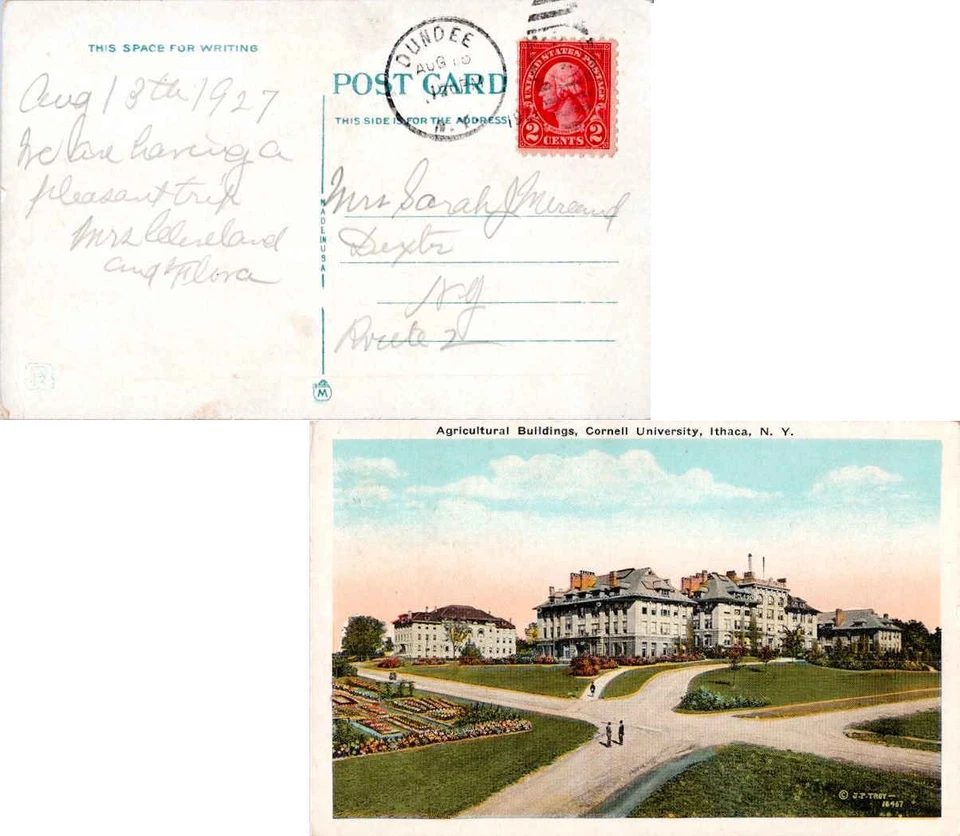 THIS SPACE FOR WRITING
Aug 13th 1927
We are having a
pleasant trip
Mrs Cleveland
and Flora
POST CARD
THIS SIDE IS FOR THE ADDRESS
DUNDEE
AUG
N.Y.
UNITED STATES POSTAGE
2 CENTS 2
MADE IN USA
Mrs Sarah J
Dexter
N Y
Route 2
M
Agricultural Buildings, Cornell University, Ithaca, N. Y.
© J.P. TROY—